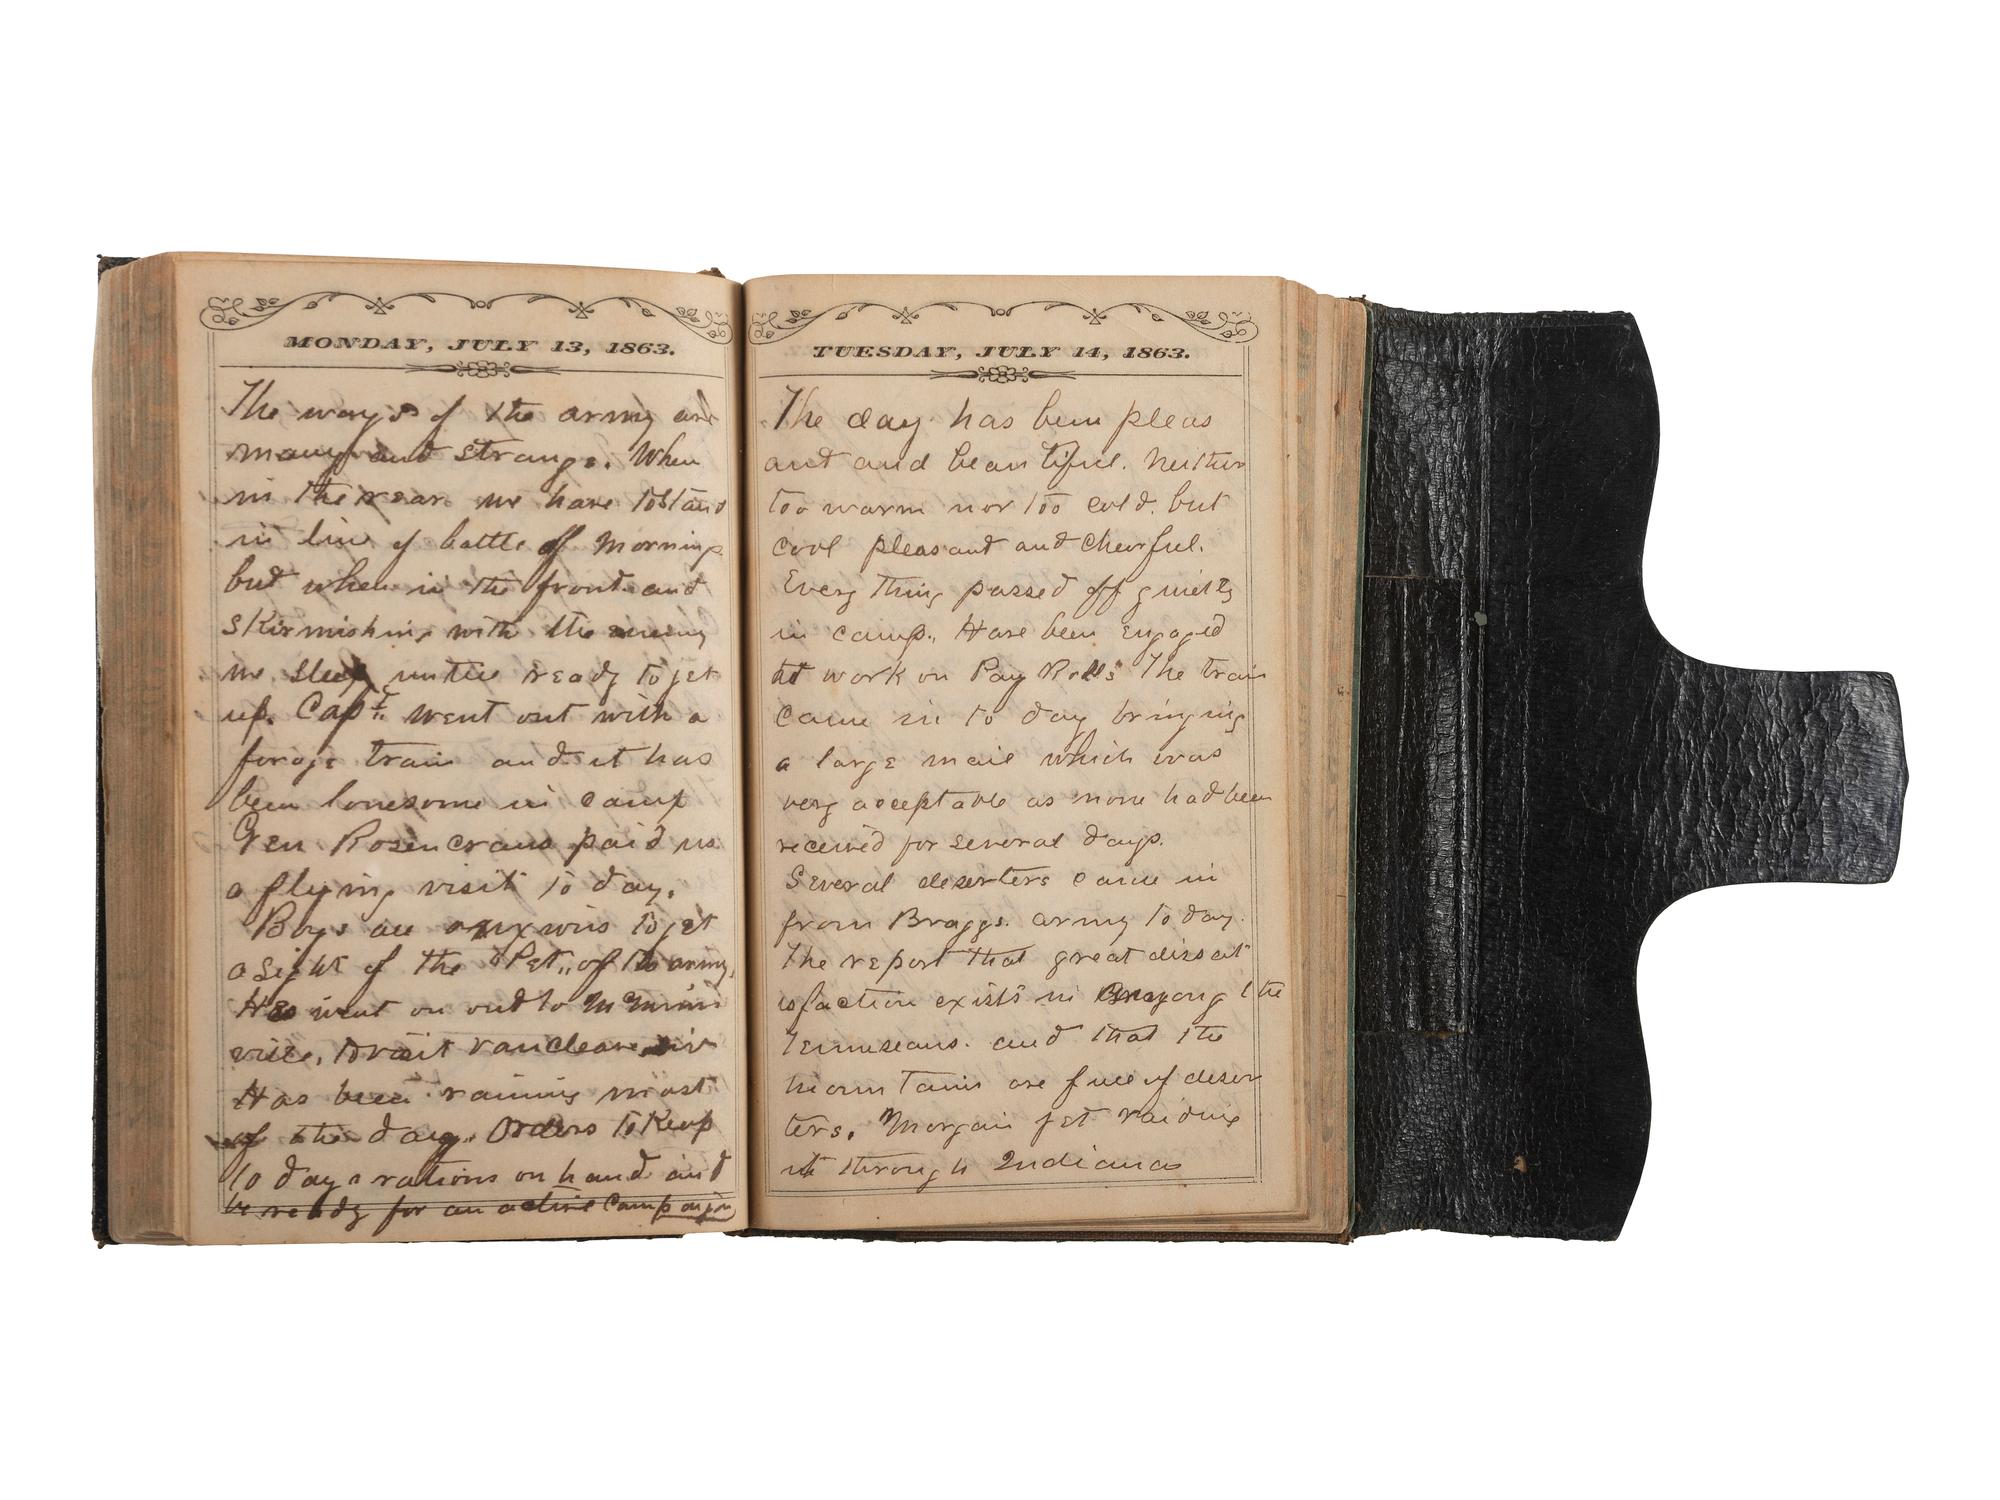 MONDAY, JULY 13, 1863.
The ways of the army are
many and strange. When
in the rear we have to stand
in line of battle of Morning
but when in the front and
skirmishing with the enemy
we sleep until ready to get
up. Capt. went out with a
forage train and it has
been lonesome in camp
Gen Rosencrans paid us
a flying visit to day.
Boys are anxious to get
a sight of the "Pet" of the army.
Has went on out to McMinn
ville, to visit Vancleave div
Has been raining most
of the day. Orders to Keep
10 days rations on hand and
be ready for an active Campaign
TUESDAY, JULY 14, 1863.
The day has been pleas
ant and beautiful. Neither
too warm nor too cold. but
cool pleasant and cheerful.
Every thing passed off quietly
in camp. Have been engaged
at work on Pay Rolls The train
came in to day bringing
a large mail which was
very acceptable as none had been
received for several days.
Several deserters came in
from Braggs army to day.
The report that great dissat
isfaction exists in among the
Tenneseans. and that the
mountains are full of deser
ters. Morgan yet raiding
it through Indiana